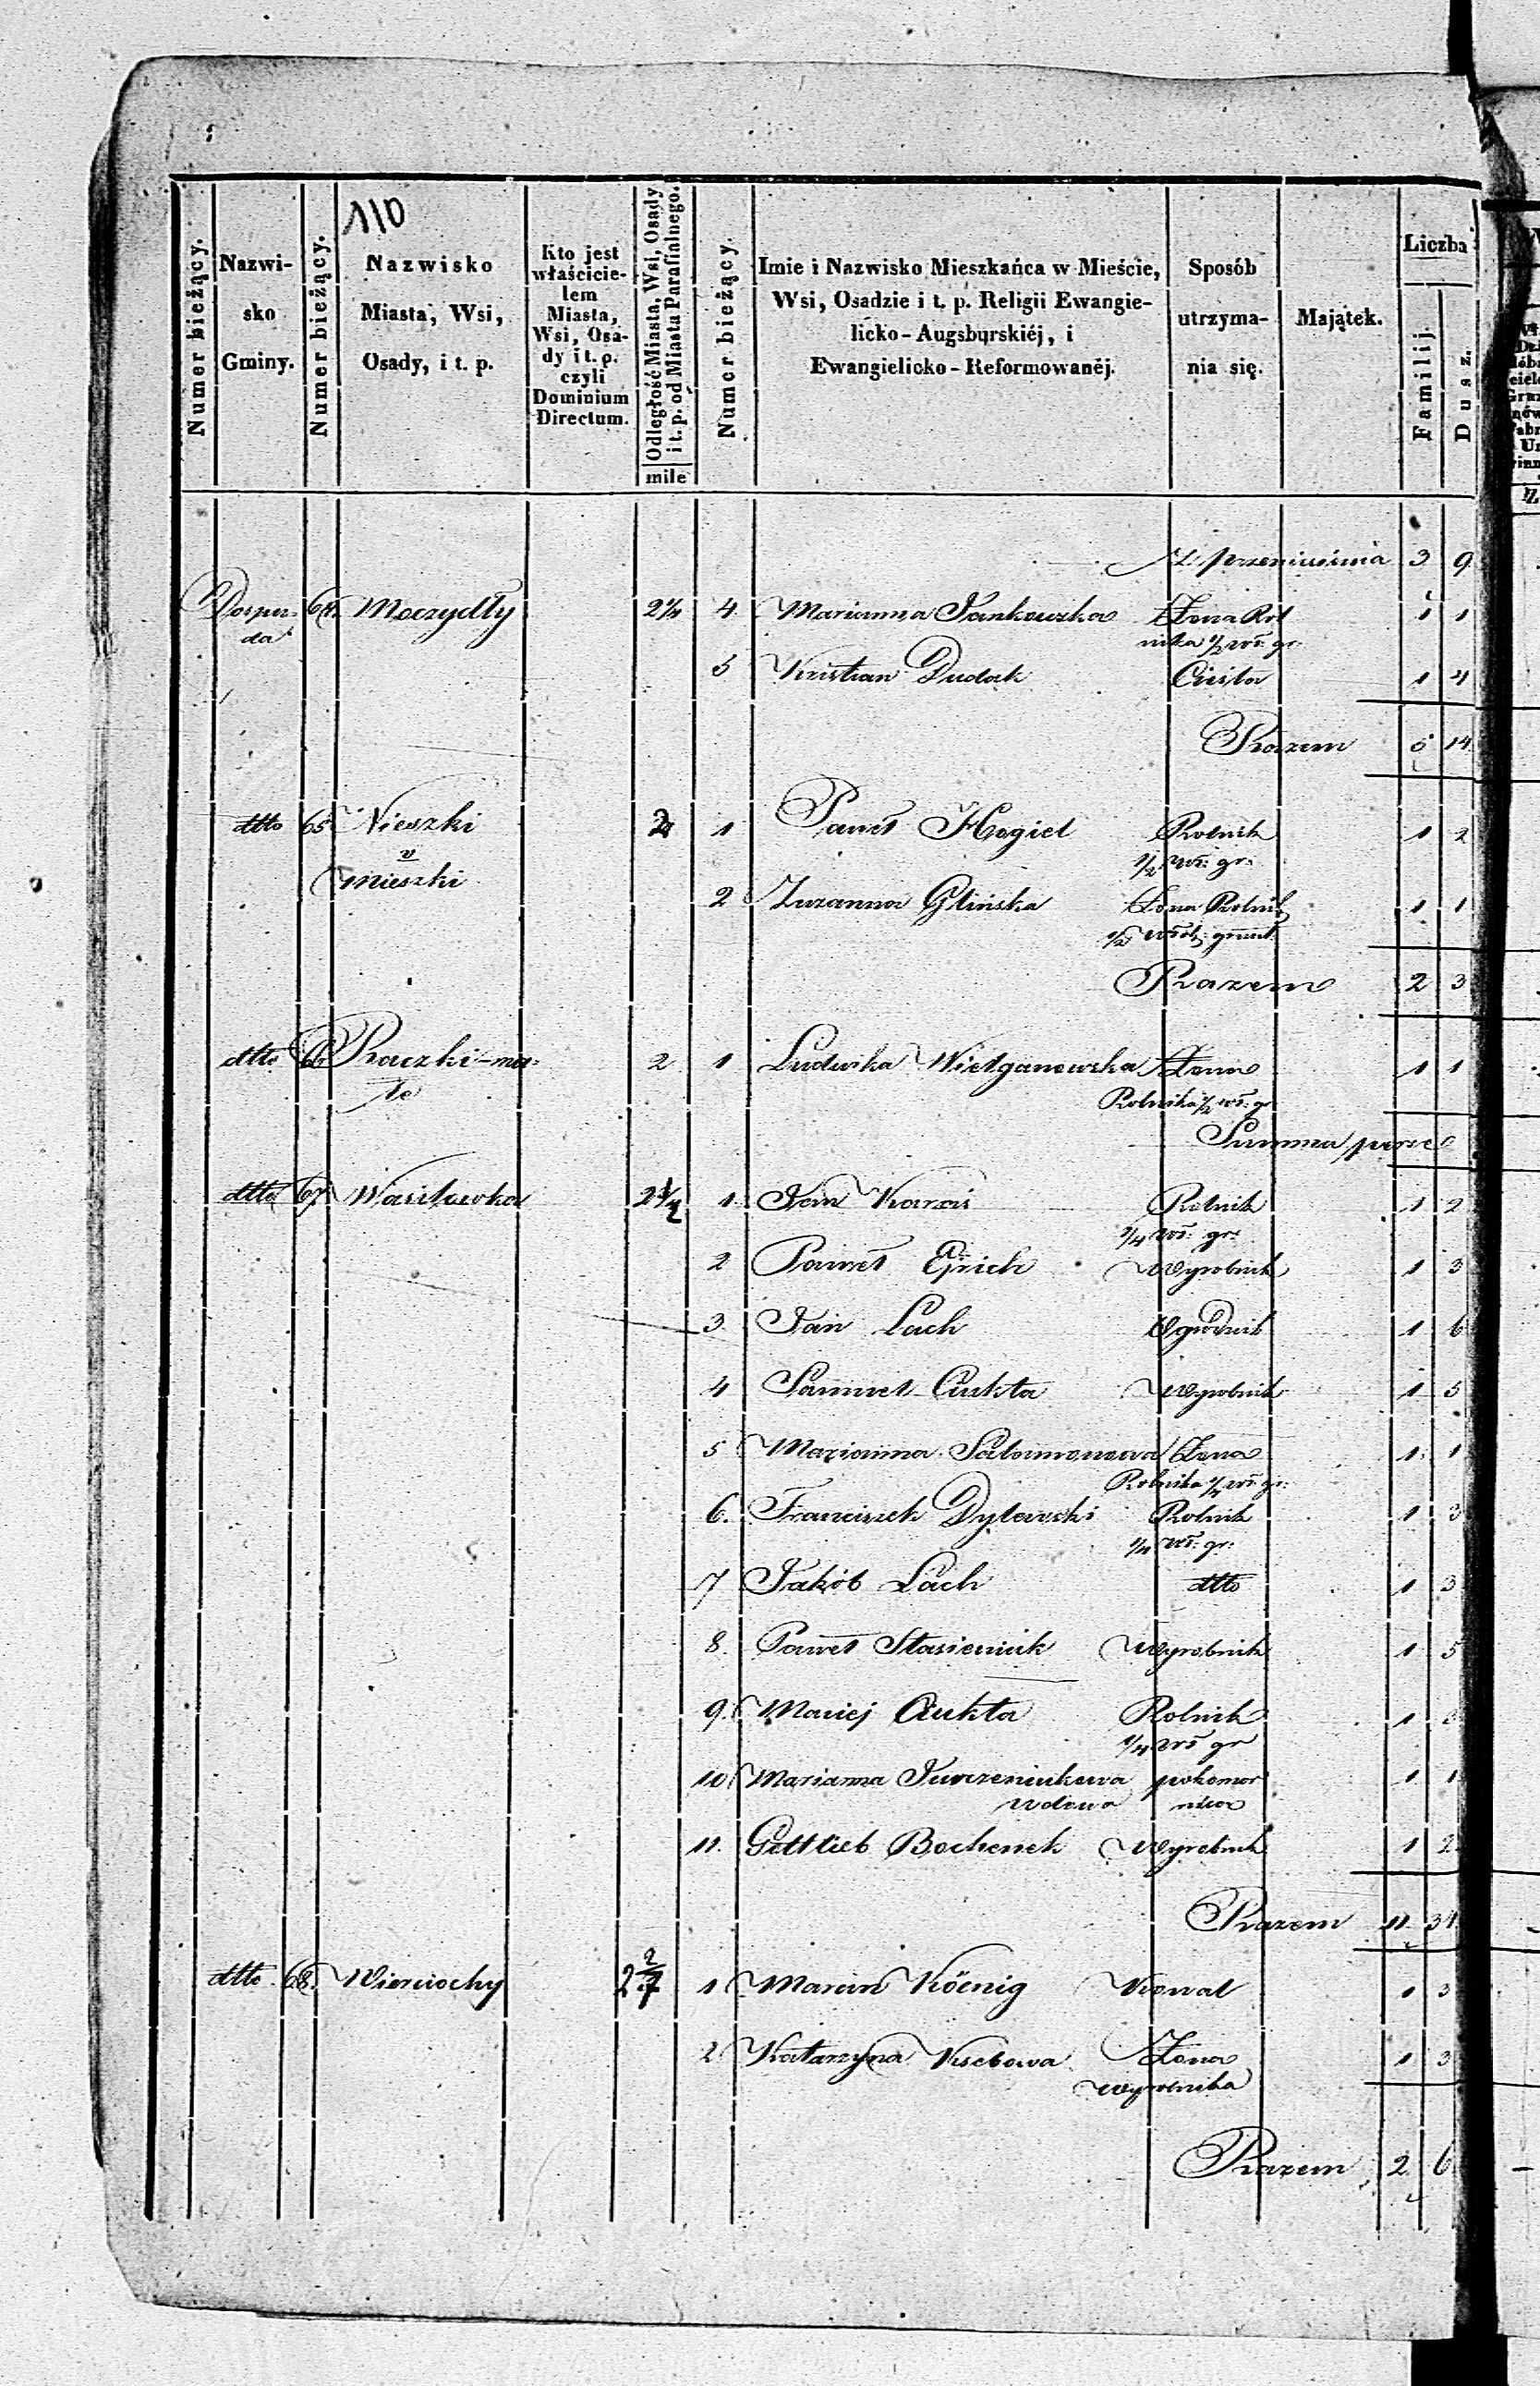 110
Numer bieżący.
Nazwi-
sko
Gminy.
Numer bieżący.
Nazwisko
Miasta, Wsi,
Osady, i t. p.
Kto jest
właścicie-
lem
Miasta,
Wsi, Osa-
dy i t. p.
czyli
Dominium
Directum.
Odległość Miasta, Wsi, Osady
i t. p. od Miasta Parafialnego.
mile
Numer bieżący.
Imie i Nazwisko Mieszkańca w Mieście,
Wsi, Osadzie i t. p. Religii Ewangie-
licko-Augsburskiéj, i
Ewangielicko-Reformowanéj.
Sposób
utrzyma-
nia się.
Majątek.
Liczba
Familij.
Dusz.
Z przeniesienia 3 9
Dospu- 64. Moczydły 2¼ 4 Marianna Jankowska Żona Rol 1 1
da nika ½ wł. gr.
5 Kristian Dudak Cieśla 1 4
Razem 5 14
dtto 65 Nieszki 2 1 Paweł Hogiel Rolnik 1 2
v ½ wł. gr.
Mieszki
2 Zuzanna Glińska Żona Rolnik 1 1
½ włók. grunt.
Razem 2 3
dtto 66 Raczki-ma- 2 1 Ludwika Wielganowska Żona 1 1
łe Rolnika ½ wł. gr
Summa perse
dtto 67 Wasilówka 2½ 1. Jan Karaś Rolnik 1 2
¼ wł. gr.
2 Paweł Wyrobnik 1 3
3. Jan Lach Ogrodnik 1 6
4 Samuel Ciukta Wyrobnik 1 5
5 Marianna Salomonowa Żona 1 1
Rolnika ¼ wł. gr.
6. Franciszek Dylewski Rolnik 1 3
¼ wł. gr.
7 Jakób Lach dtto 1 3
8. Paweł Stasieniuk Wyrobnik 1 5
9. Maciej Ciukta Rolnik 1
¼ wł gr
10 Marianna pokomor 1 1
wdowa nica
11. Gottlieb Bochenek Wyrobnik 1 2
Razem 11 34
dtto. 68. Wierciochy 2 2/7 1 Marcin Köenig Kowal 1 3
2 Katarzyna Żona 1 3
wyrobnika
Razem 2 6